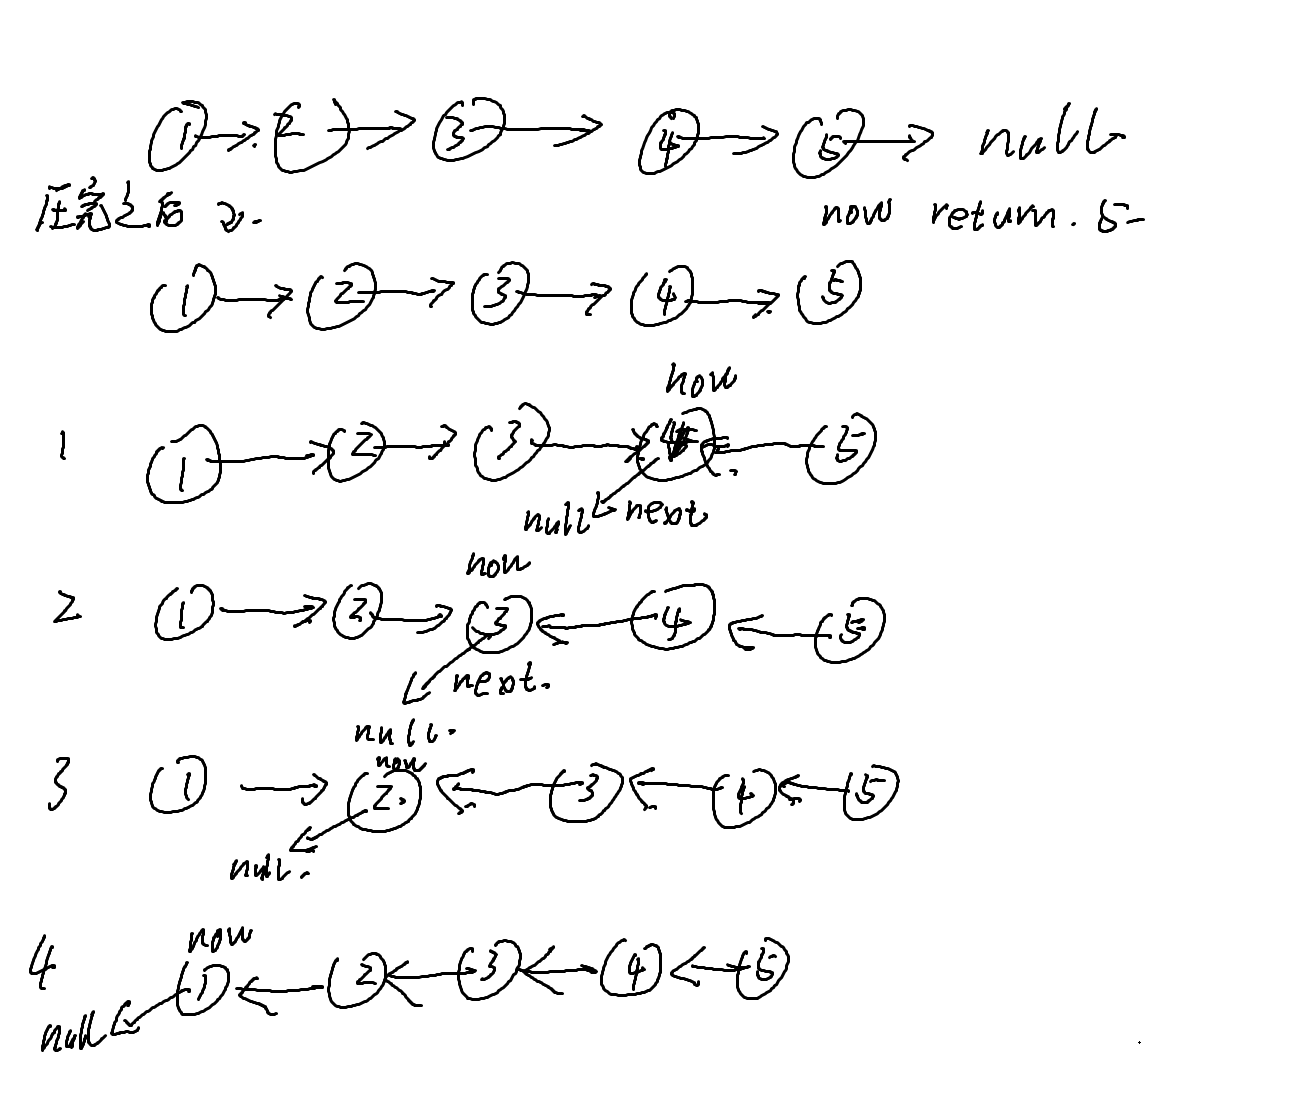 1 2 3 4 5 null
压完之后 now return. 5
1 2 3 4 5
now
1 1 2 3 4 5
null next
now
2 1 2 3 4 5
next.
null.
now
3 1 2. 3 4 5
null.
now
4 1 2 3 4 5
null